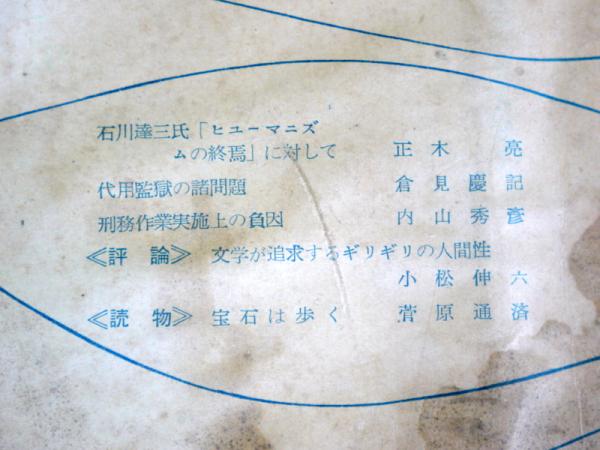 石川達三氏「ヒユーマニズ
ムの終焉」に対して 正木亮
代用監獄の諸問題 倉見慶記
刑務作業実施上の負因 内山秀彦
≪評論≫ 文学が追求するギリギリの人間性
小松伸六
≪読物≫ 宝石は歩く 菅原通済